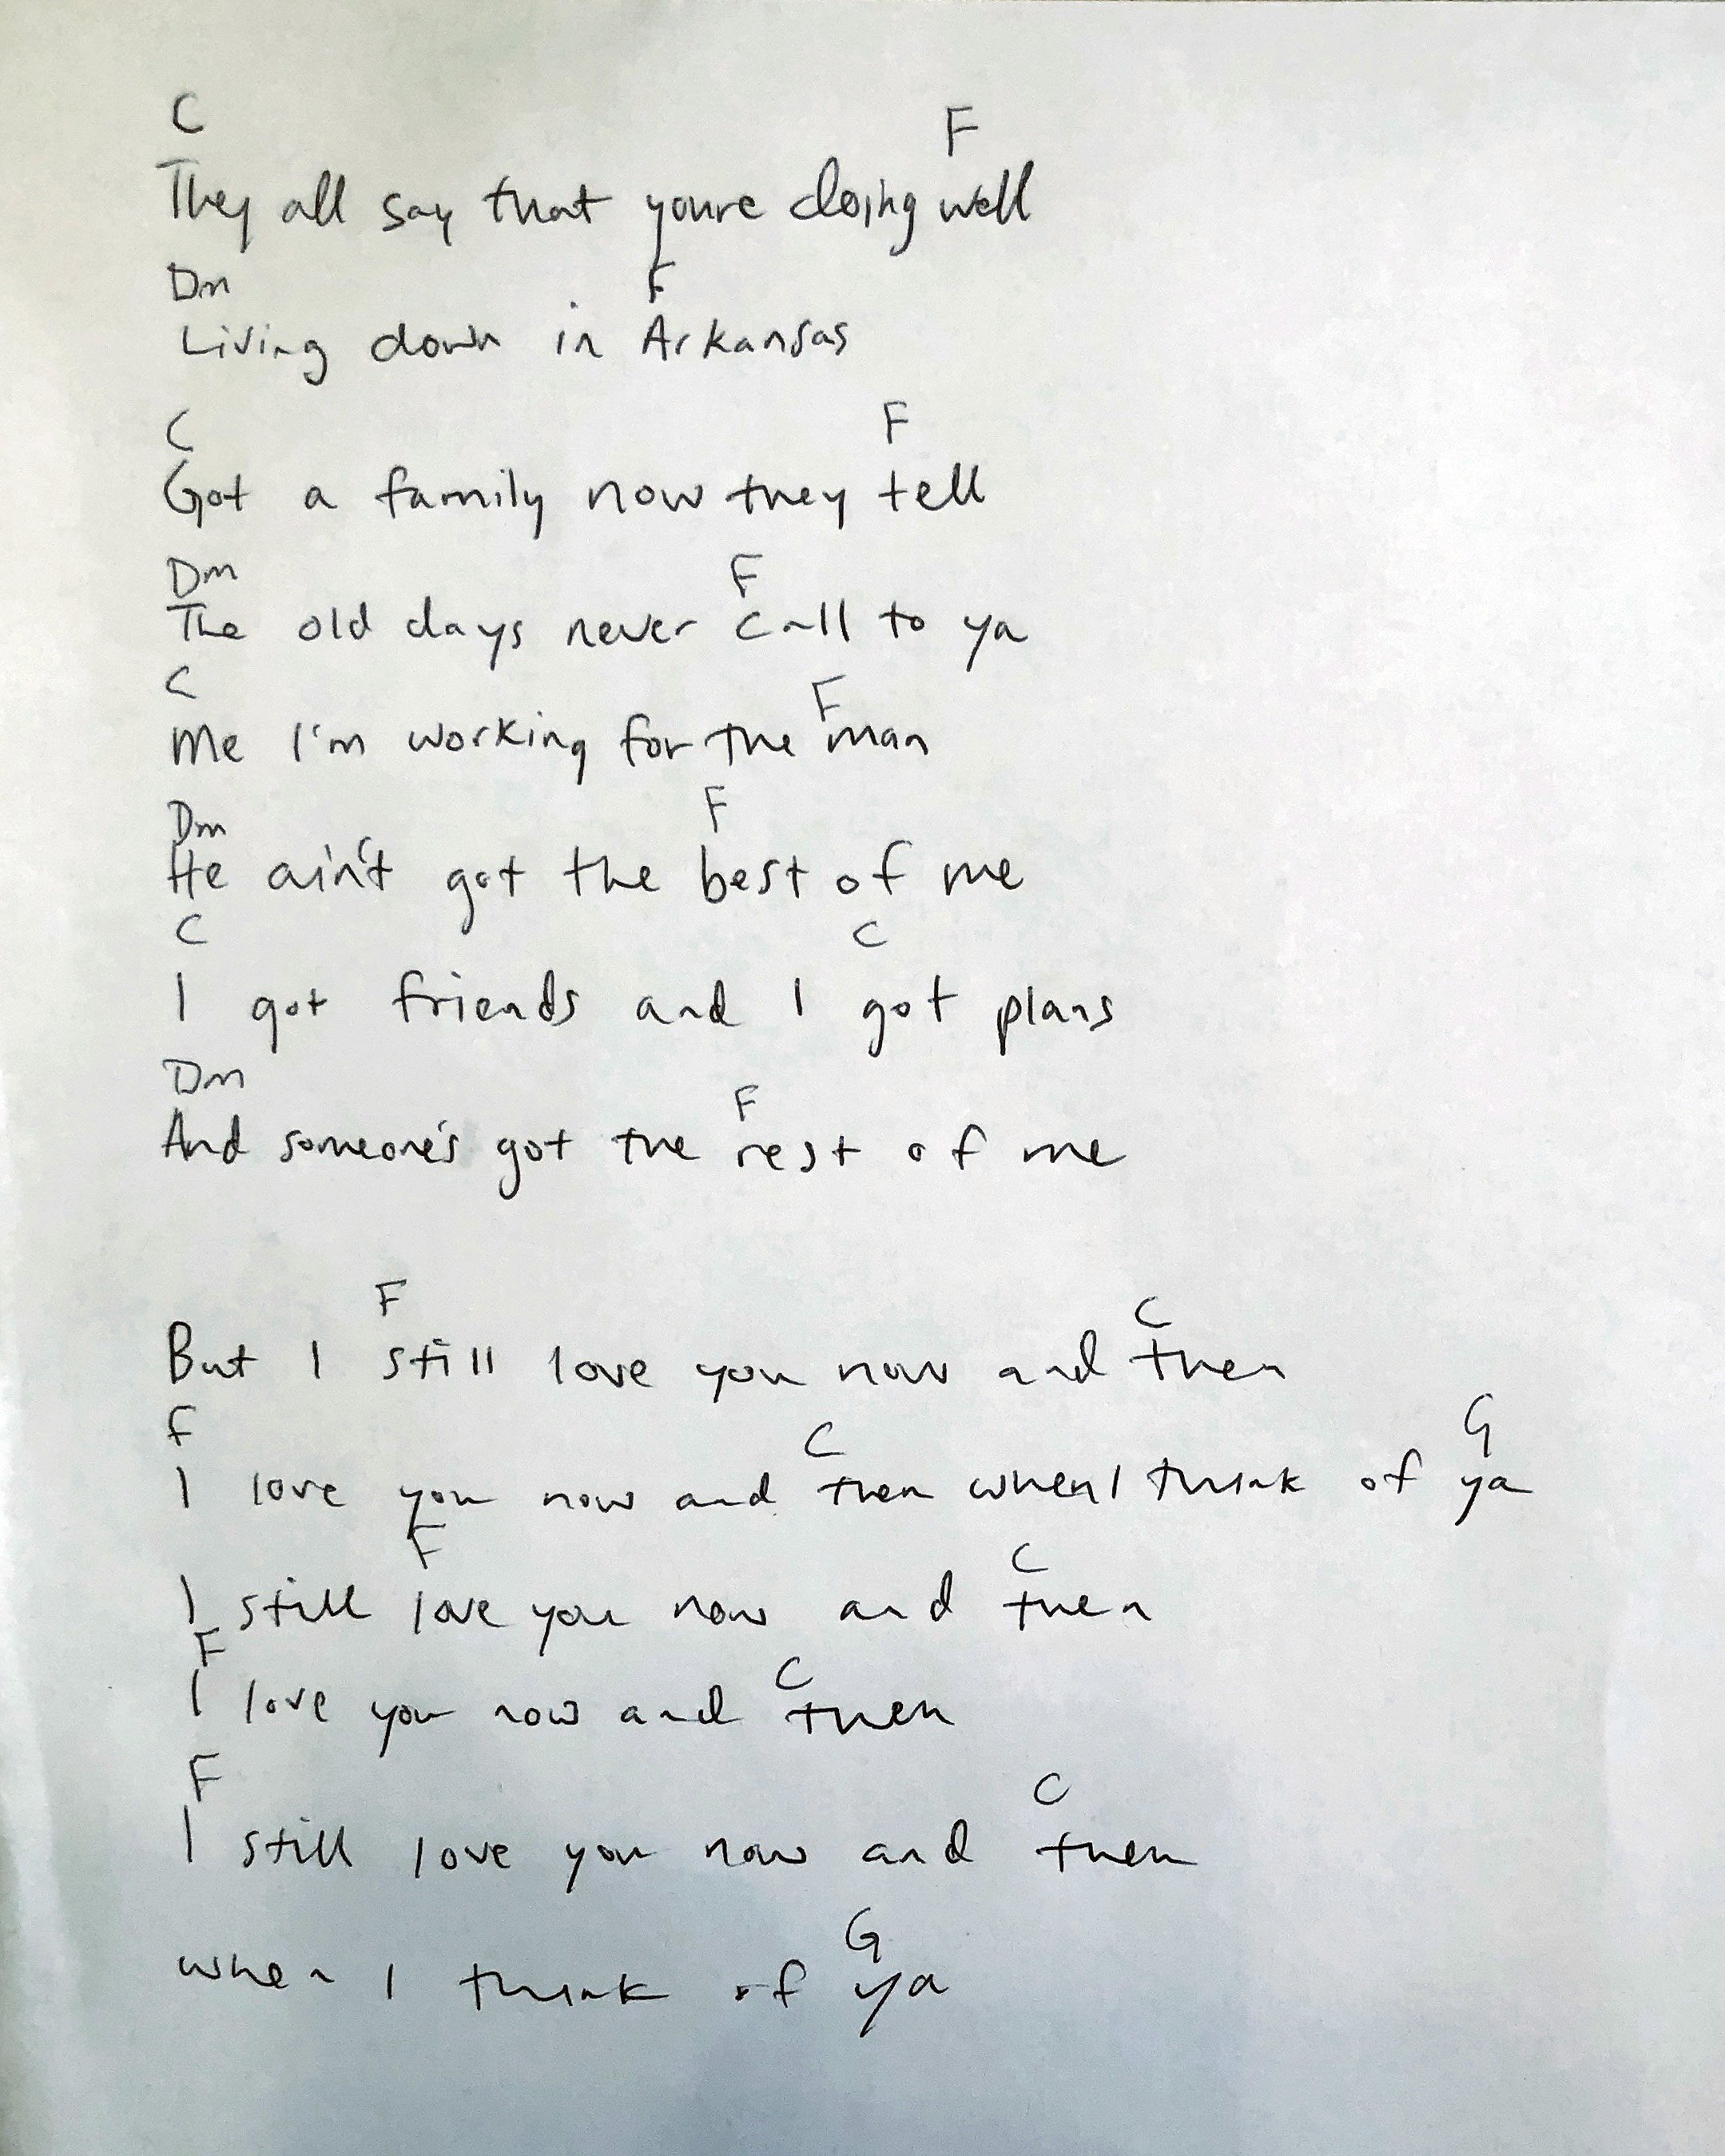 C F
They all say that youre doing well
Dm F
Living down in Arkansas
C F
Got a family now they tell
Dm F
The old days never call to ya
C F
Me I'm working for the man
Dm F
He ain't got the best of me
C C
I got friends and I got plans
Dm F
And someone's got the rest of me
F C
But I still love you now and then
F C G
I love you now and then when I think of ya
F C
I still love you now and then
F C
I love you now and then
F C
I still love you now and then
G
when I think of ya